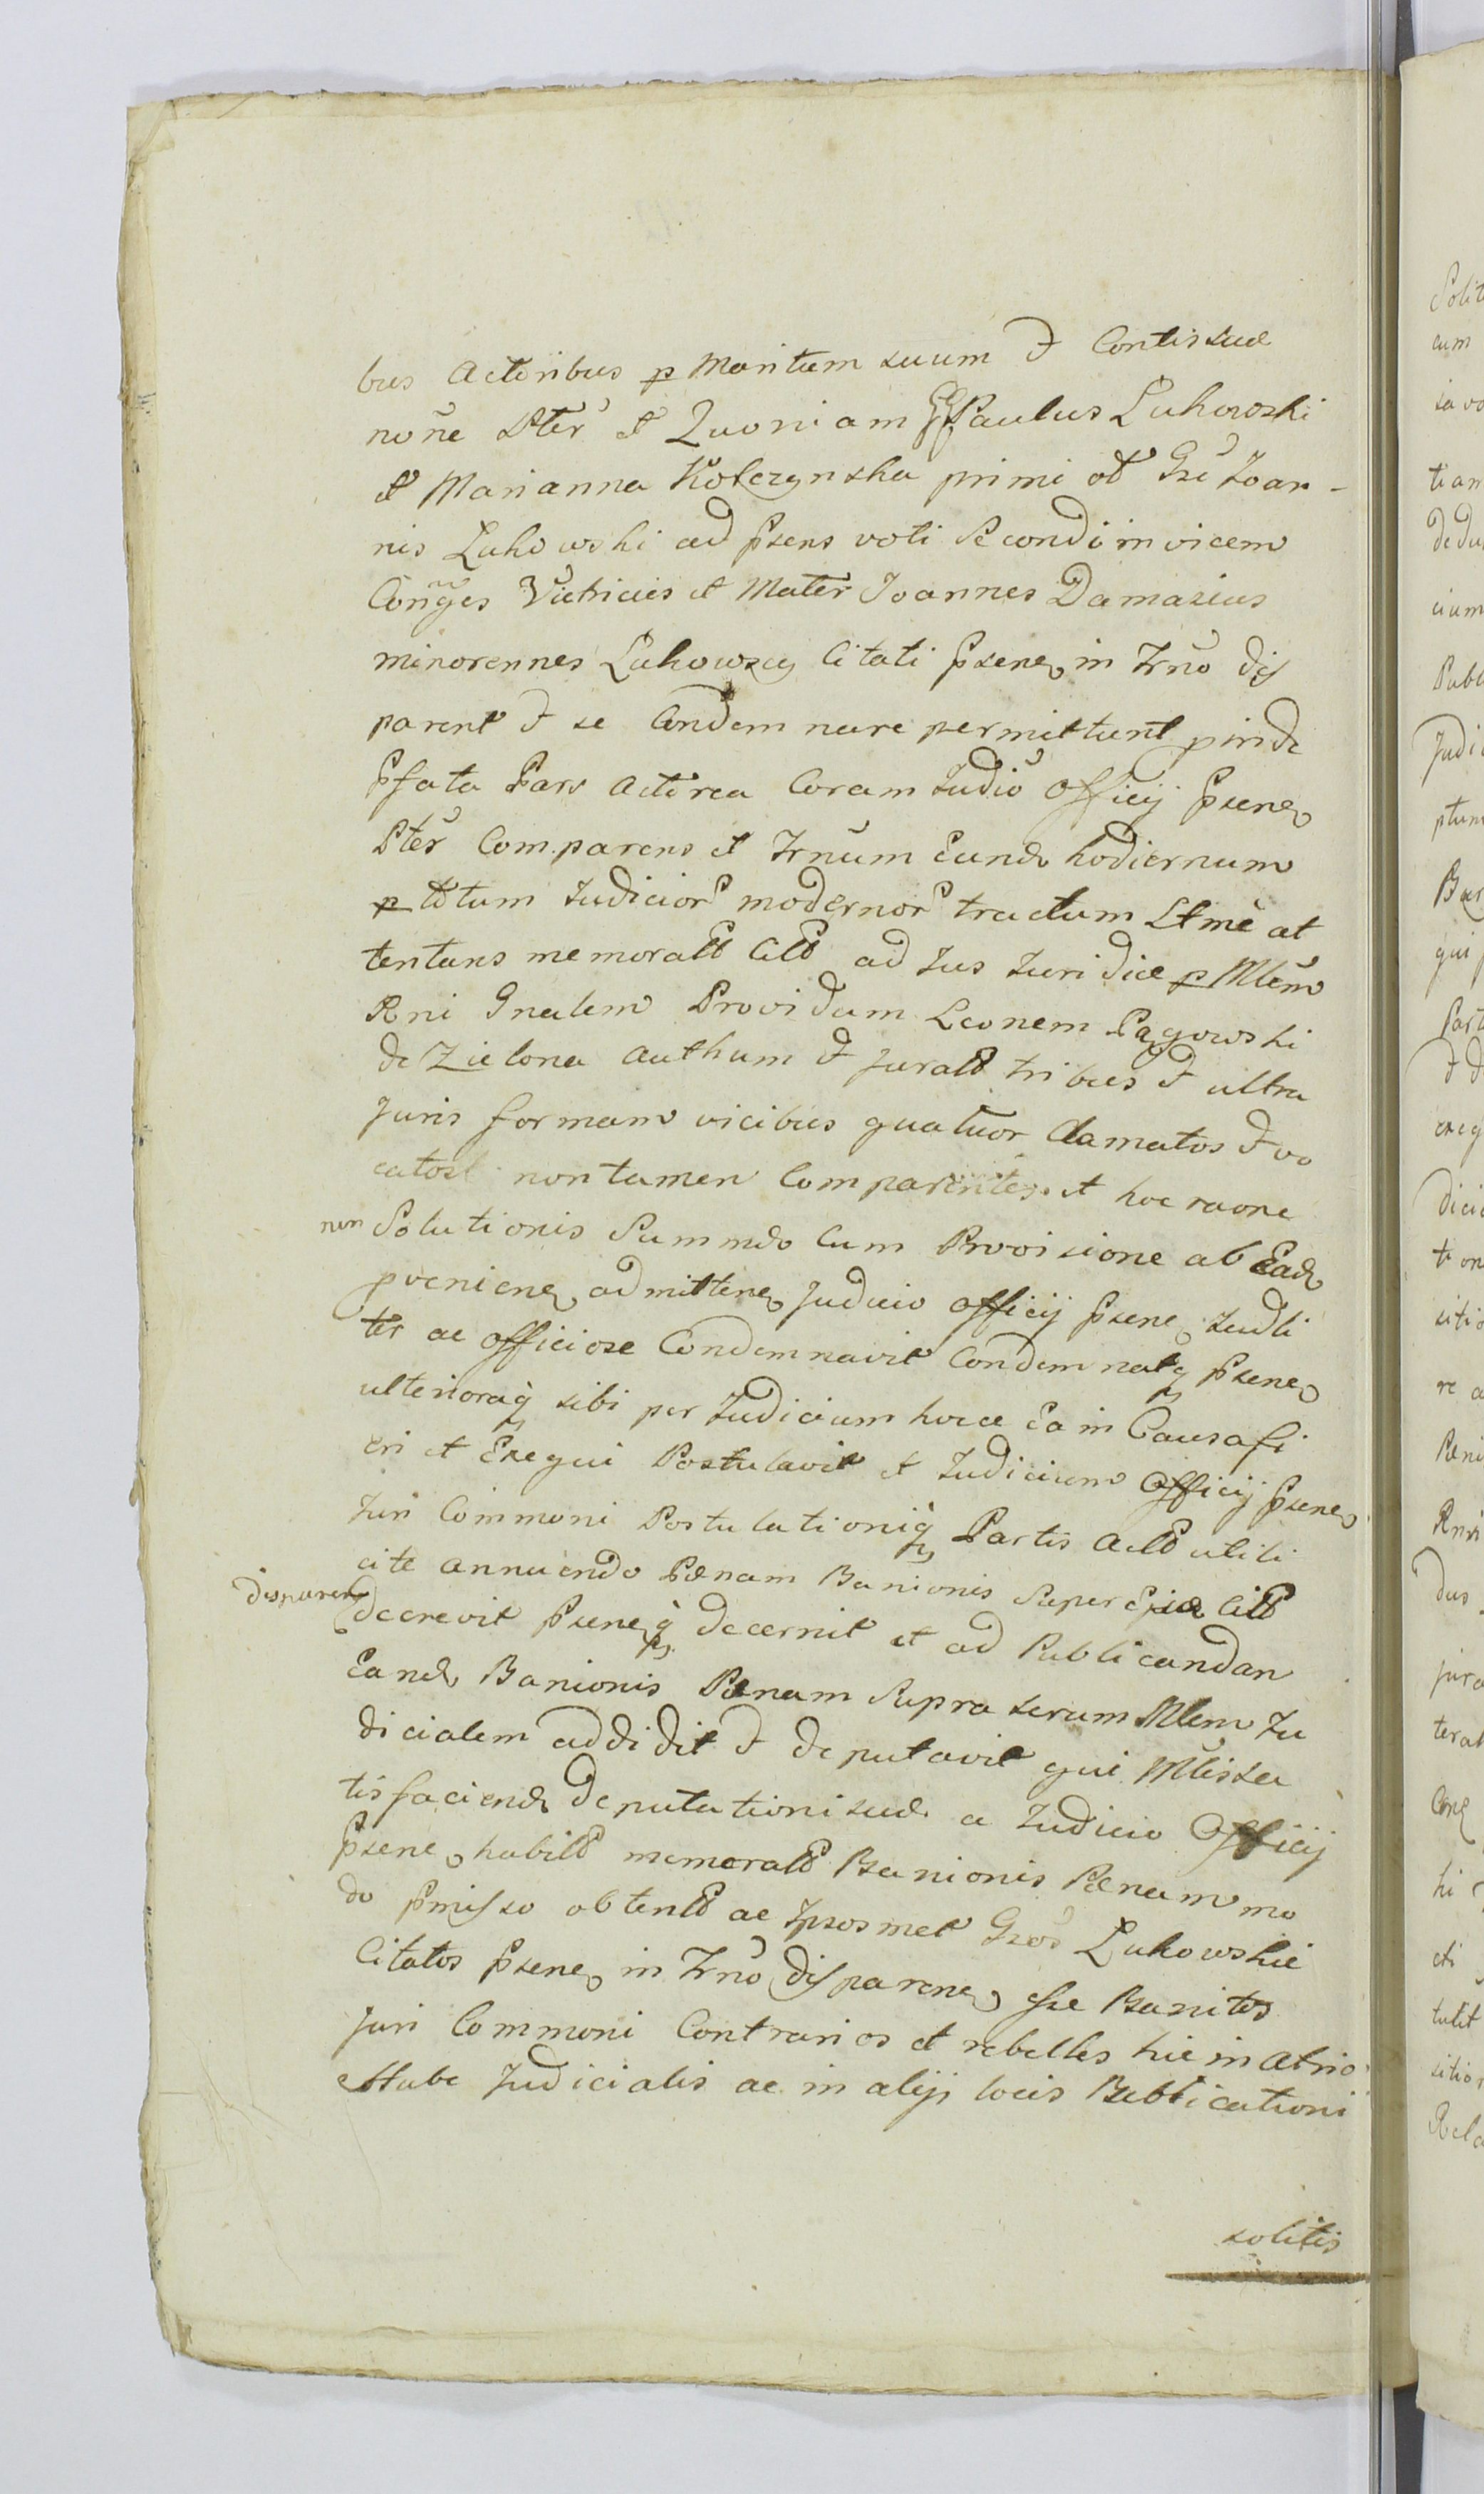 bus Actoribus p Maritum suum & Contis suae
noñe Pter & Quoniam GG Paulus Łukowski
& Marianna Kołczynska primi ot Gsi Joan-
nis Łukowski ad psens voti Secondi invicem
Conges Victricus et Mater Joannes Damazius
minorennes Łukowscy Citati psene in Trno dis
parent & se Condemnare permittunt pinde
Pfata Pars Actorea Coram Judio Officij psene
Pter Comparens et Trnum Eund hodiernum
p totum Judicior modernor tractum Ltme at
tentans memoratt Citt ad Jus Juridice p Mlem
Rni Gnalem Providum Leonem Pągowski
de Zielona Authum & Juratt tribus & ultra
Juris formam vicibus quatuor Clamatos & vo
catos non tamen Comparentes et hoc raone
non Solutionis Summae Cum Provisione ab Ead
pveniene admittene Judicio Officij psene Judli
ter ac officiose Condemnavit Condemnatq psene
ulterioraq sibi per Judicium hocce Ea in Causa fi
eri et Exequi Postulavit et Judicium Officij psene
Juri Commoni Postulationiq Partis Actt utili
cite annuendo Paenam Banionis Super Citt
disparen decrevit pseneq decernit et ad Publicandan
Eand Banionis Paenam Supra scrum Mlem Ju
dicialem addidit & deputavit qui Mlis sa
tisfaciend deputationi suae a Judicio Officij
psene habitt memoratt Banionis Paenam mo
do pmisso obtentt ac Ipsosmet Gsos Łukowskie
Citatos psene in Trno disparene esse Banitos
Juri Commoni Contrarios et rebelles hic in Atrio
Stubae Judicialis ac in alijs locis Publicationi
solitis